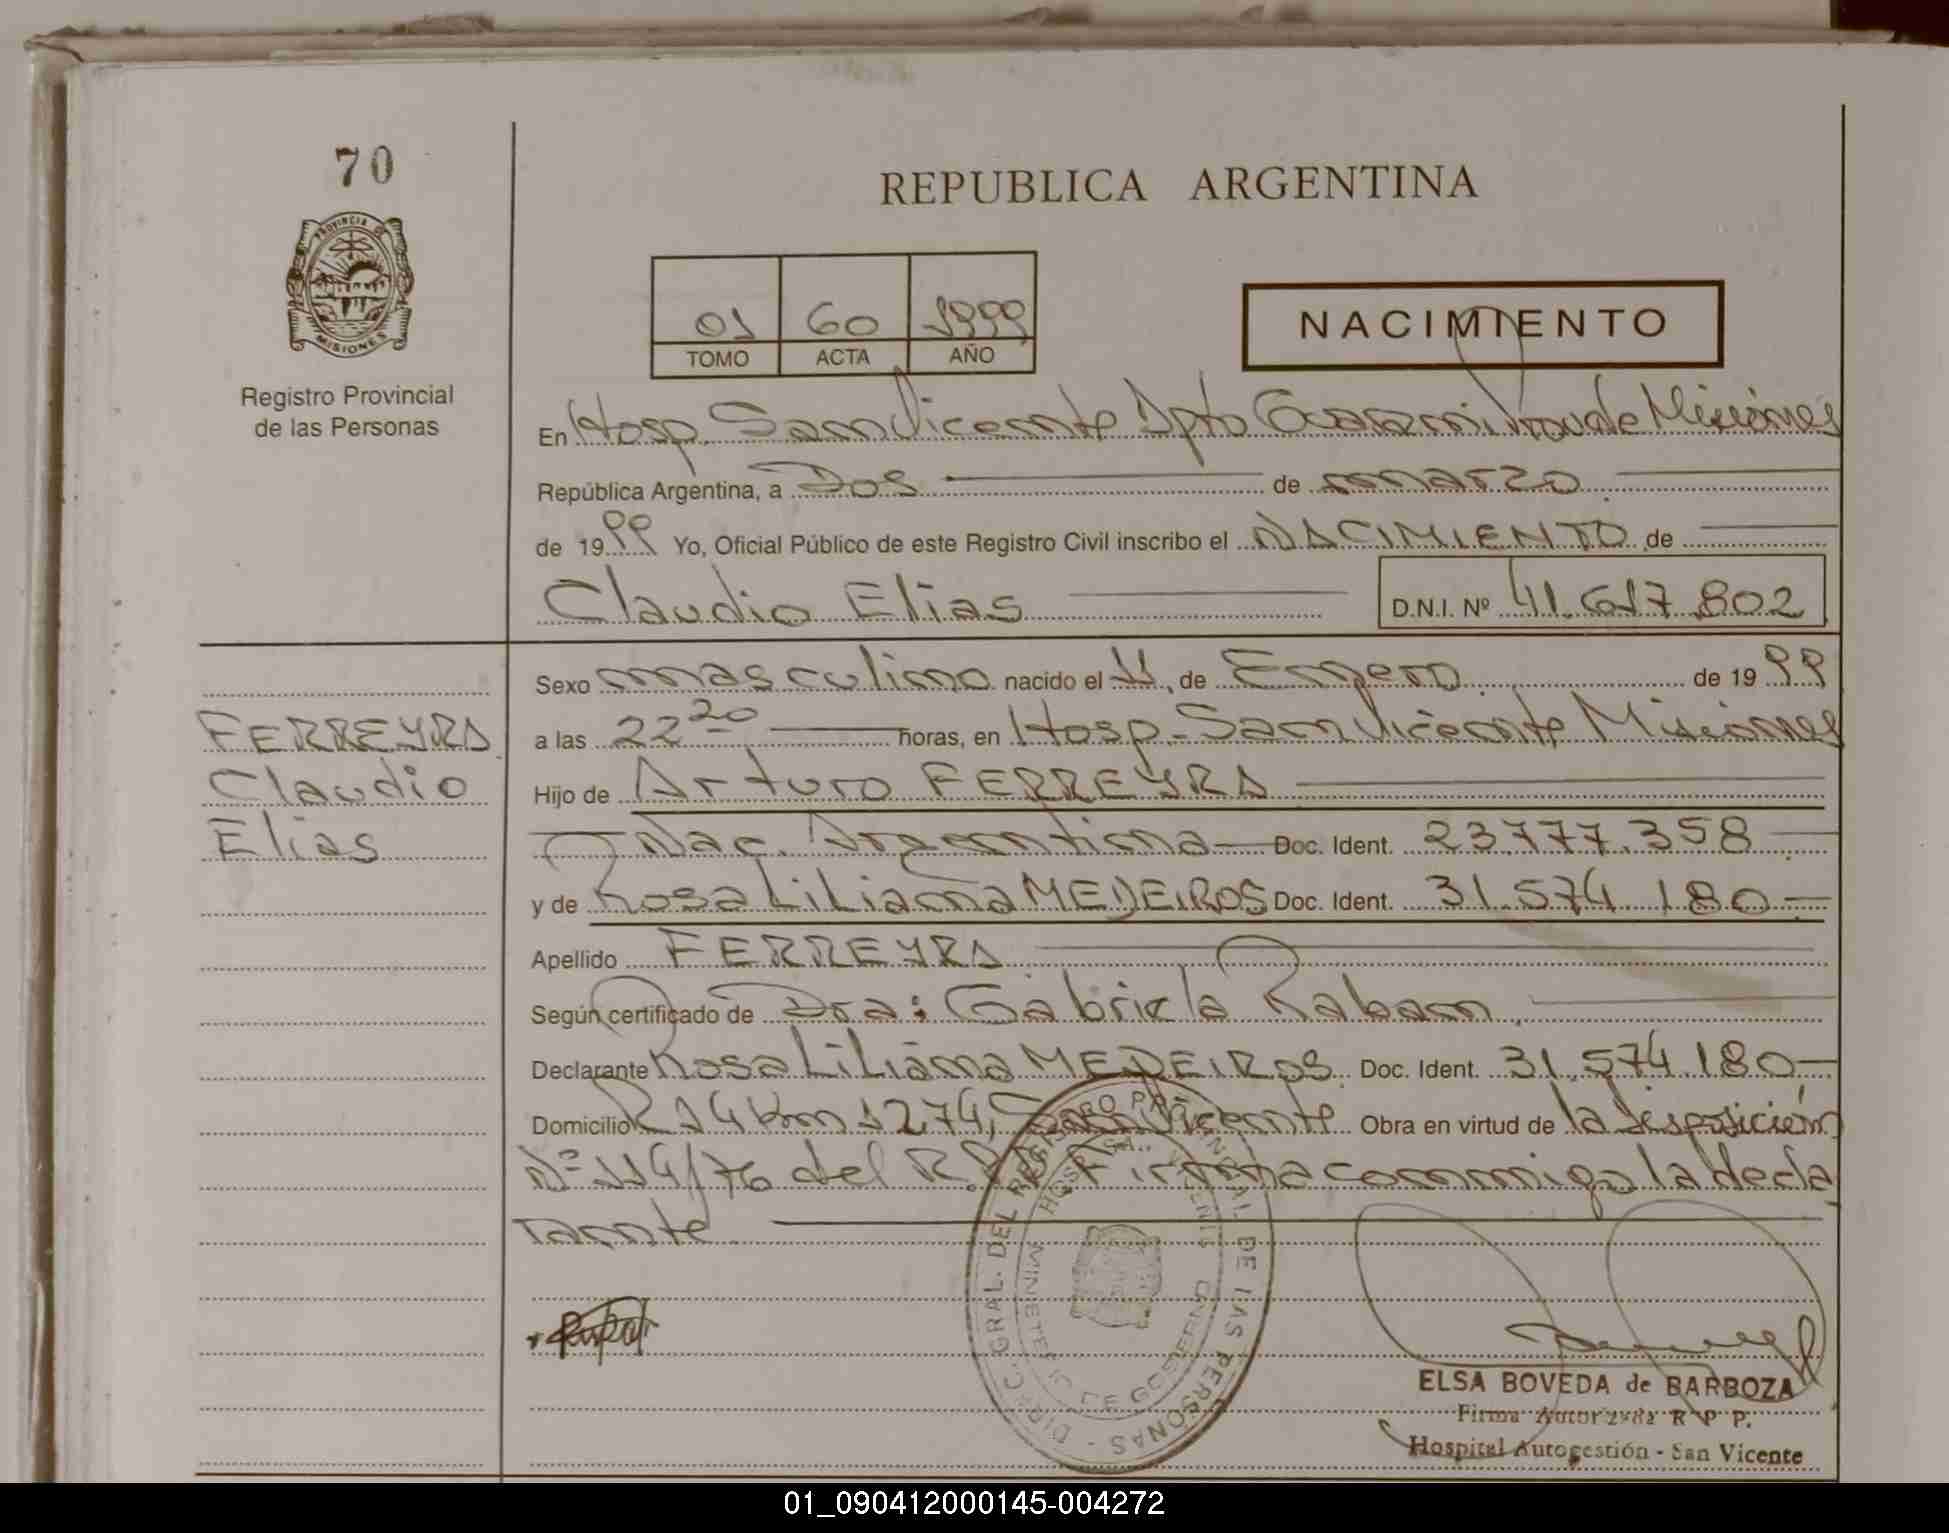 70
PROVINCIA DE
MISIONES
Registro Provincial
de las Personas
REPUBLICA ARGENTINA
01 60 1999
TOMO ACTA AÑO
NACIMIENTO
En Hosp. San Vicente Dpto Guaraní Prov de Misiones
República Argentina, a Dos de marzo
de 1999 Yo, Oficial Público de este Registro Civil inscribo el NACIMIENTO de
Claudio Elias D.N.I. Nº 41.617.802
FERREYRA
Claudio
Elias
Sexo masculino nacido el 11, de Enero de 1999
a las 22 20 horas, en Hosp. San Vicente Misiones
Hijo de Arturo FERREYRA
Nac. Argentina Doc. Ident. 23.777.358
y de Rosa Liliana MEDEIROS Doc. Ident. 31.574.180
Apellido FERREYRA
Según certificado de Dra: Gabriela Raban
Declarante Rosa Liliana MEDEIROS Doc. Ident. 31.574.180
Domicilio R 14 Km 1274, San Vicente Obra en virtud de la disposición
Nº 114/76 del R.P.P. Firma conmigo la decla
rante
DIRECC. GRAL. DEL REGISTRO PROVINCIAL DE LAS PERSONAS
MINISTERIO DE GOBIERNO
ELSA BOVEDA de BARBOZA
Firma Autorizada R P P.
Hospital Autogestión - San Vicente
01_090412000145-004272